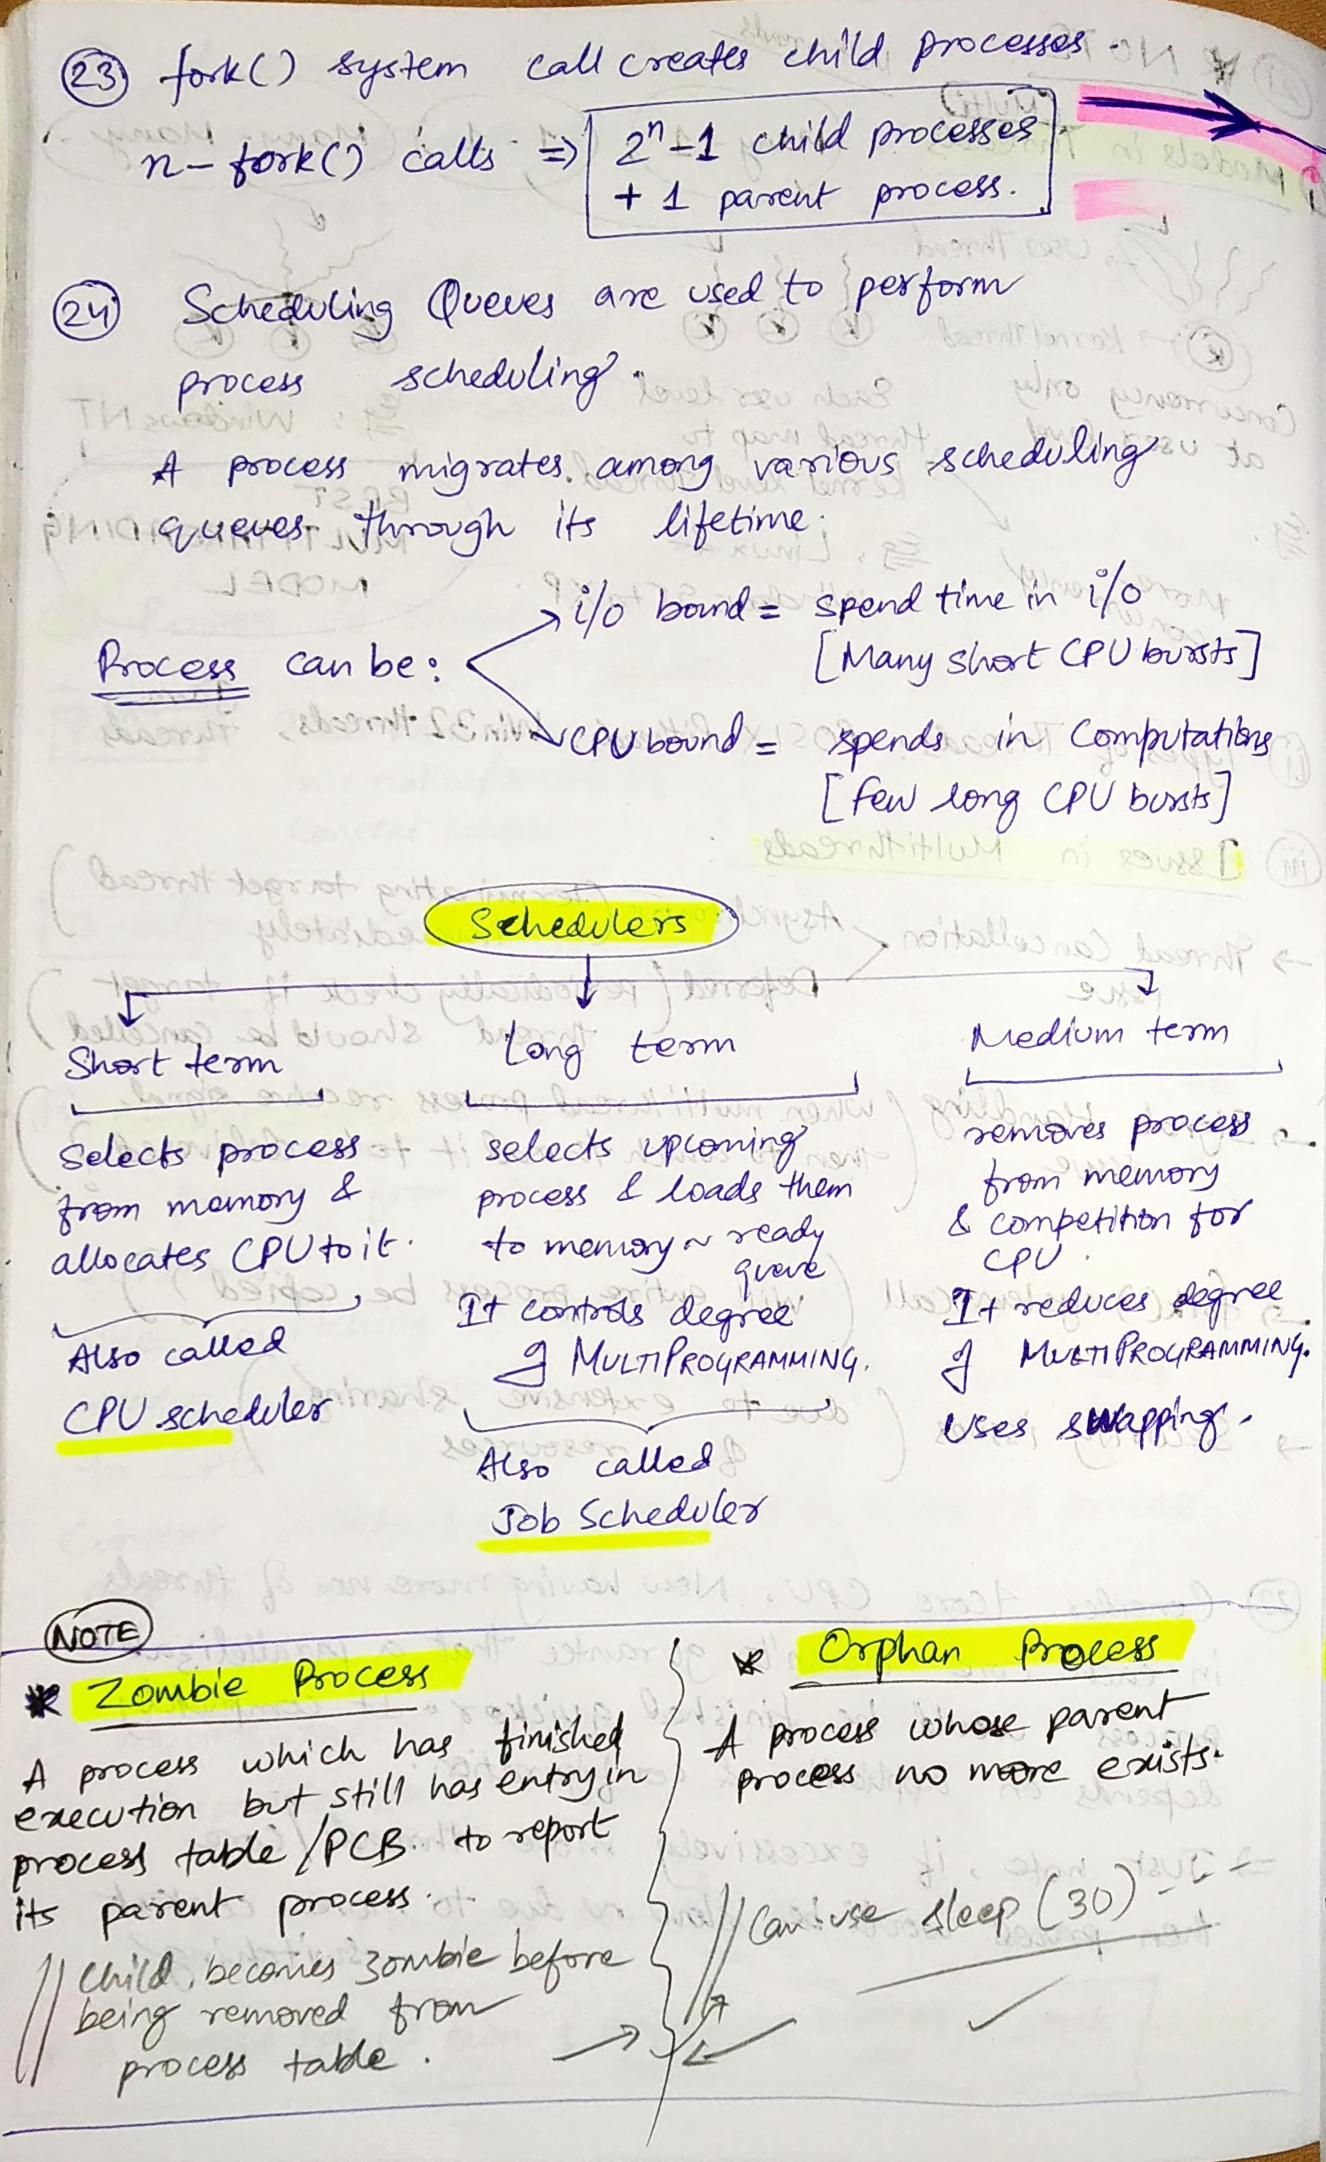 23 fork() system call creates child processes.
n-fork() calls ⇒ 2ⁿ-1 child processes
+ 1 parent process.
24 Scheduling Queues are used to perform
process scheduling.
A process migrates among various scheduling
queues through its lifetime.
Process can be:
i/o bound = spend time in i/o
[Many short CPU bursts]
CPU bound = spends in Computations
[few long CPU bursts]
Schedulers
Short term
Selects process
from memory &
allocates CPU to it.
Also called
CPU scheduler
Long term
selects upcoming
process & loads them
to memory ~ ready
queue
It controls degree
of MULTIPROGRAMMING.
Also called
Job Scheduler
Medium term
removes process
from memory
& competition for
CPU.
It reduces degree
of MULTIPROGRAMMING.
Uses swapping.
NOTE
* Zombie Process
A process which has finished
execution but still has entry in
process table /PCB to report
its parent process.
// Child becomes zombie before
being removed from
process table.
* Orphan Process
A process whose parent
process no more exists.
// Can use sleep (30)